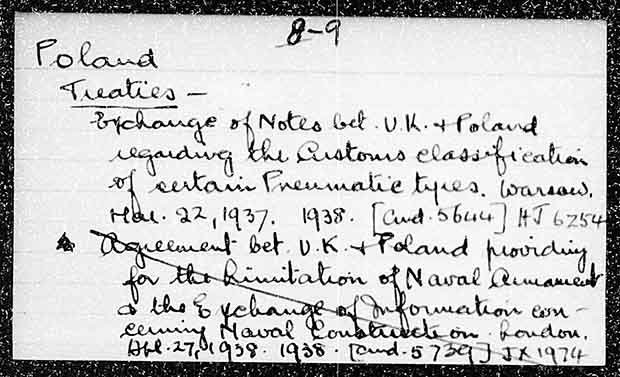 8-9
Poland
Treaties —
Exchange of Notes bet. U.K. & Poland
regarding the Customs classification
of certain Pneumatic tyres. Warsaw.
Mar. 22, 1937. 1938. [Cmd. 5644] HJ 6254
Agreement bet. U.K. & Poland providing
for the Limitation of Naval Armament
& the Exchange of Information con-
cerning Naval Construction. London.
Apl. 27, 1938. 1938. [Cmd. 5739] JX 1974